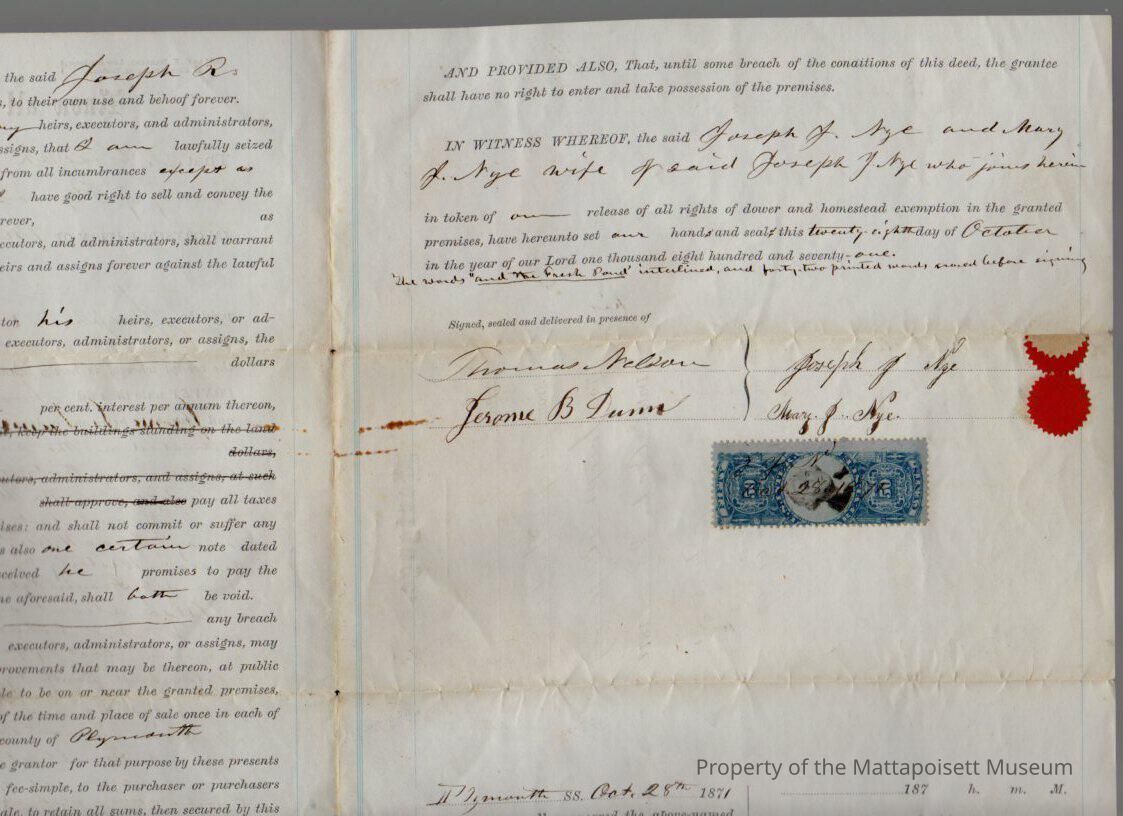 the said Joseph R.
s, to their own use and behoof forever.
my heirs, executors, and administrators,
ssigns, that I am lawfully seized
from all incumbrances except as
have good right to sell and convey the
rever, as
ecutors, and administrators, shall warrant
eirs and assigns forever against the lawful
tor his heirs, executors, or ad-
executors, administrators, or assigns, the
dollars
per cent. interest per annum thereon,
keep the buildings standing on the land
dollars,
utors, administrators, and assigns, at such
shall approve, and also pay all taxes
ises: and shall not commit or suffer any
s also one certain note dated
ceived he promises to pay the
ne aforesaid, shall both be void.
any breach
executors, administrators, or assigns, may
rovements that may be thereon, at public
le to be on or near the granted premises,
of the time and place of sale once in each of
county of Plymouth
e grantor for that purpose by these presents
fee-simple, to the purchaser or purchasers
ale, to retain all sums, then secured by this
AND PROVIDED ALSO, That, until some breach of the conditions of this deed, the grantee
shall have no right to enter and take possession of the premises.
IN WITNESS WHEREOF, the said Joseph J. Nye and Mary
J. Nye wife of said Joseph J Nye who joins herein
in token of our release of all rights of dower and homestead exemption in the granted
premises, have hereunto set our hands and seals this twenty-eighth day of October
in the year of our Lord one thousand eight hundred and seventy-one.
The words "and the Fresh Pond" interlined, and forty-two printed words erased before signing
Signed, sealed and delivered in presence of
Thomas Nelson
Jerome B Dunn
Joseph J Nye
Mary J. Nye.
Plymouth SS. Oct. 28th 1871
187 h. m. M.
the above-named
Property of the Mattapoisett Museum